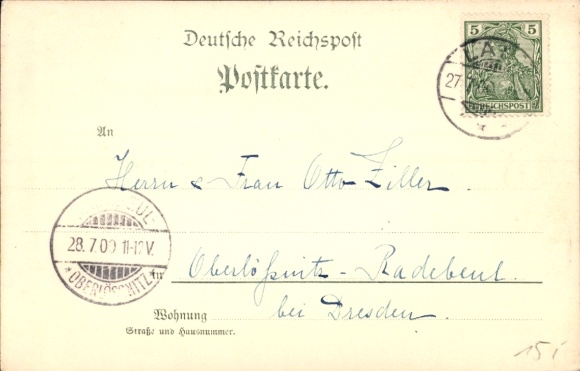 5
REICHSPOST
Deutsche Reichspost
Postkarte.
27.7
An
Herrn & Frau Otto Ziller.
28.7.00 11-12V.
* OBERLÖSSNITZ
in Oberlößnitz-Radebeul
bei Dresden.
Wohnung
Straße und Hausnummer.
15